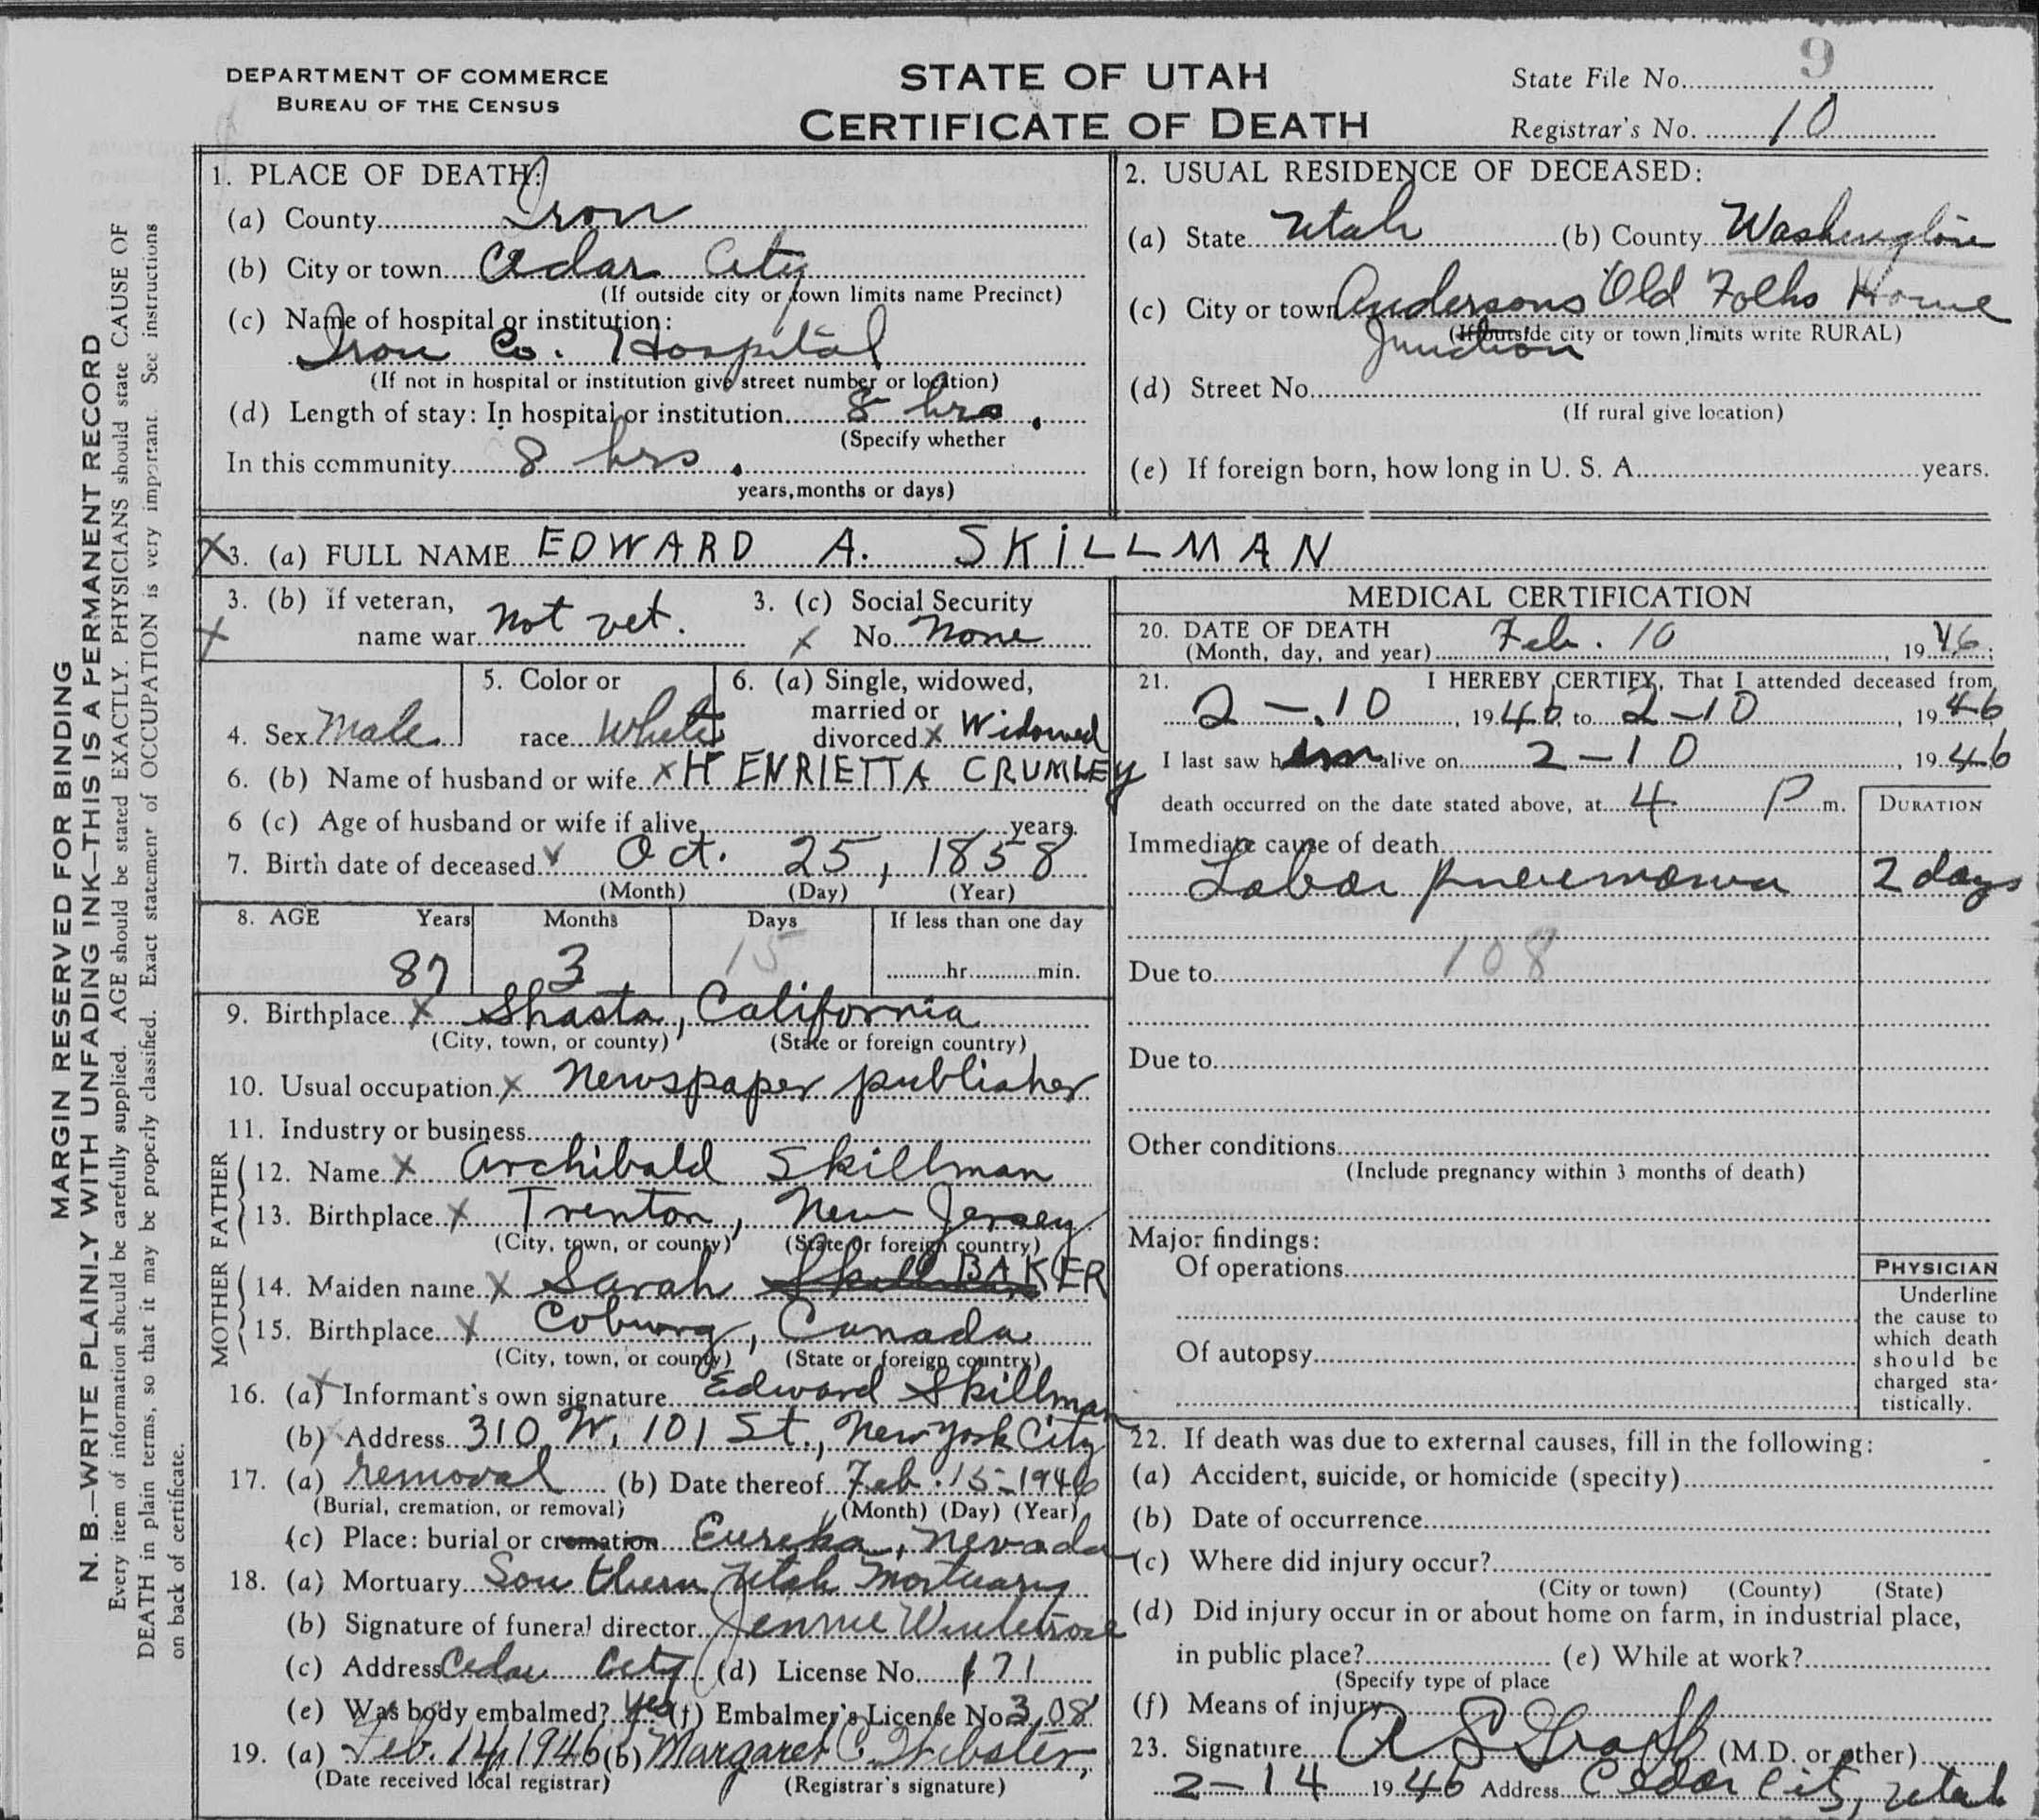 9
DEPARTMENT OF COMMERCE
BUREAU OF THE CENSUS
STATE OF UTAH
CERTIFICATE OF DEATH
State File No.
Registrar's No. 10
MARGIN RESERVED FOR BINDING
N. B.—WRITE PLAINLY WITH UNFADING INK—THIS IS A PERMANENT RECORD
Every item of information should be carefully supplied. AGE should be stated EXACTLY. PHYSICIANS should state CAUSE OF
DEATH in plain terms, so that it may be properly classified. Exact statement of OCCUPATION is very important. See instructions
on back of certificate.
1. PLACE OF DEATH:
(a) County Iron
(b) City or town Cedar City
(If outside city or town limits name Precinct)
(c) Name of hospital or institution:
Iron Co. Hospital
(If not in hospital or institution give street number or location)
(d) Length of stay: In hospital or institution 8 hrs.
(Specify whether
In this community 8 hrs.
years, months or days)
2. USUAL RESIDENCE OF DECEASED:
(a) State Utah (b) County Washington
(c) City or town Andersons Old Folks Home
(If outside city or town limits write RURAL)
Junction
(d) Street No.
(If rural give location)
(e) If foreign born, how long in U. S. A. years.
X 3. (a) FULL NAME EDWARD A. SKILLMAN
3. (b) if veteran,
X name war not vet.
3. (c) Social Security
X No. none
4. Sex Male
5. Color or
race White
6. (a) Single, widowed,
married or
divorced X Widowed
6. (b) Name of husband or wife X HENRIETTA CRUMLEY
6 (c) Age of husband or wife if alive years.
7. Birth date of deceased Oct. 25, 1858
(Month) (Day) (Year)
8. AGE Years Months Days If less than one day
87 3 15 hr. min.
9. Birthplace X Shasta, California
(City, town, or county) (State or foreign country)
10. Usual occupation X newspaper publisher
11. Industry or business
FATHER
12. Name X Archibald Skillman
13. Birthplace X Trenton, New Jersey
(City, town, or county) (State or foreign country)
MOTHER
14. Maiden name X Sarah Skillman BAKER
15. Birthplace X Coburg, Canada
(City, town, or county) (State or foreign country)
16. (a) X Informant's own signature Edward Skillman
(b) X Address 310 W. 101 St., New York City
17. (a) removal (b) Date thereof Feb. 15-1946
(Burial, cremation, or removal) (Month) (Day) (Year)
(c) Place: burial or cremation Eureka, Nevada
18. (a) Mortuary Southern Utah Mortuary
(b) Signature of funeral director Jennie Winterose
(c) Address Cedar City (d) License No. 171
(e) Was body embalmed? yes (f) Embalmer's License No. 308
19. (a) Feb. 14, 1946 (b) Margaret C. Webster,
(Date received local registrar) (Registrar's signature)
MEDICAL CERTIFICATION
20. DATE OF DEATH
(Month, day, and year) Feb. 10, 1946;
21. I HEREBY CERTIFY, That I attended deceased from
2-10, 1946 to 2-10, 1946
I last saw him alive on 2-10, 1946
death occurred on the date stated above, at 4 P m.
DURATION
Immediate cause of death
Lobar pneumonia 2 days
Due to 108
Due to
Other conditions
(Include pregnancy within 3 months of death)
Major findings:
Of operations
Of autopsy
PHYSICIAN
Underline
the cause to
which death
should be
charged sta-
tistically.
22. If death was due to external causes, fill in the following:
(a) Accident, suicide, or homicide (specify)
(b) Date of occurrence
(c) Where did injury occur?
(City or town) (County) (State)
(d) Did injury occur in or about home on farm, in industrial place,
in public place? (e) While at work?
(Specify type of place
(f) Means of injury
23. Signature (M.D. or other)
2-14 1946 Address Cedar City, Utah